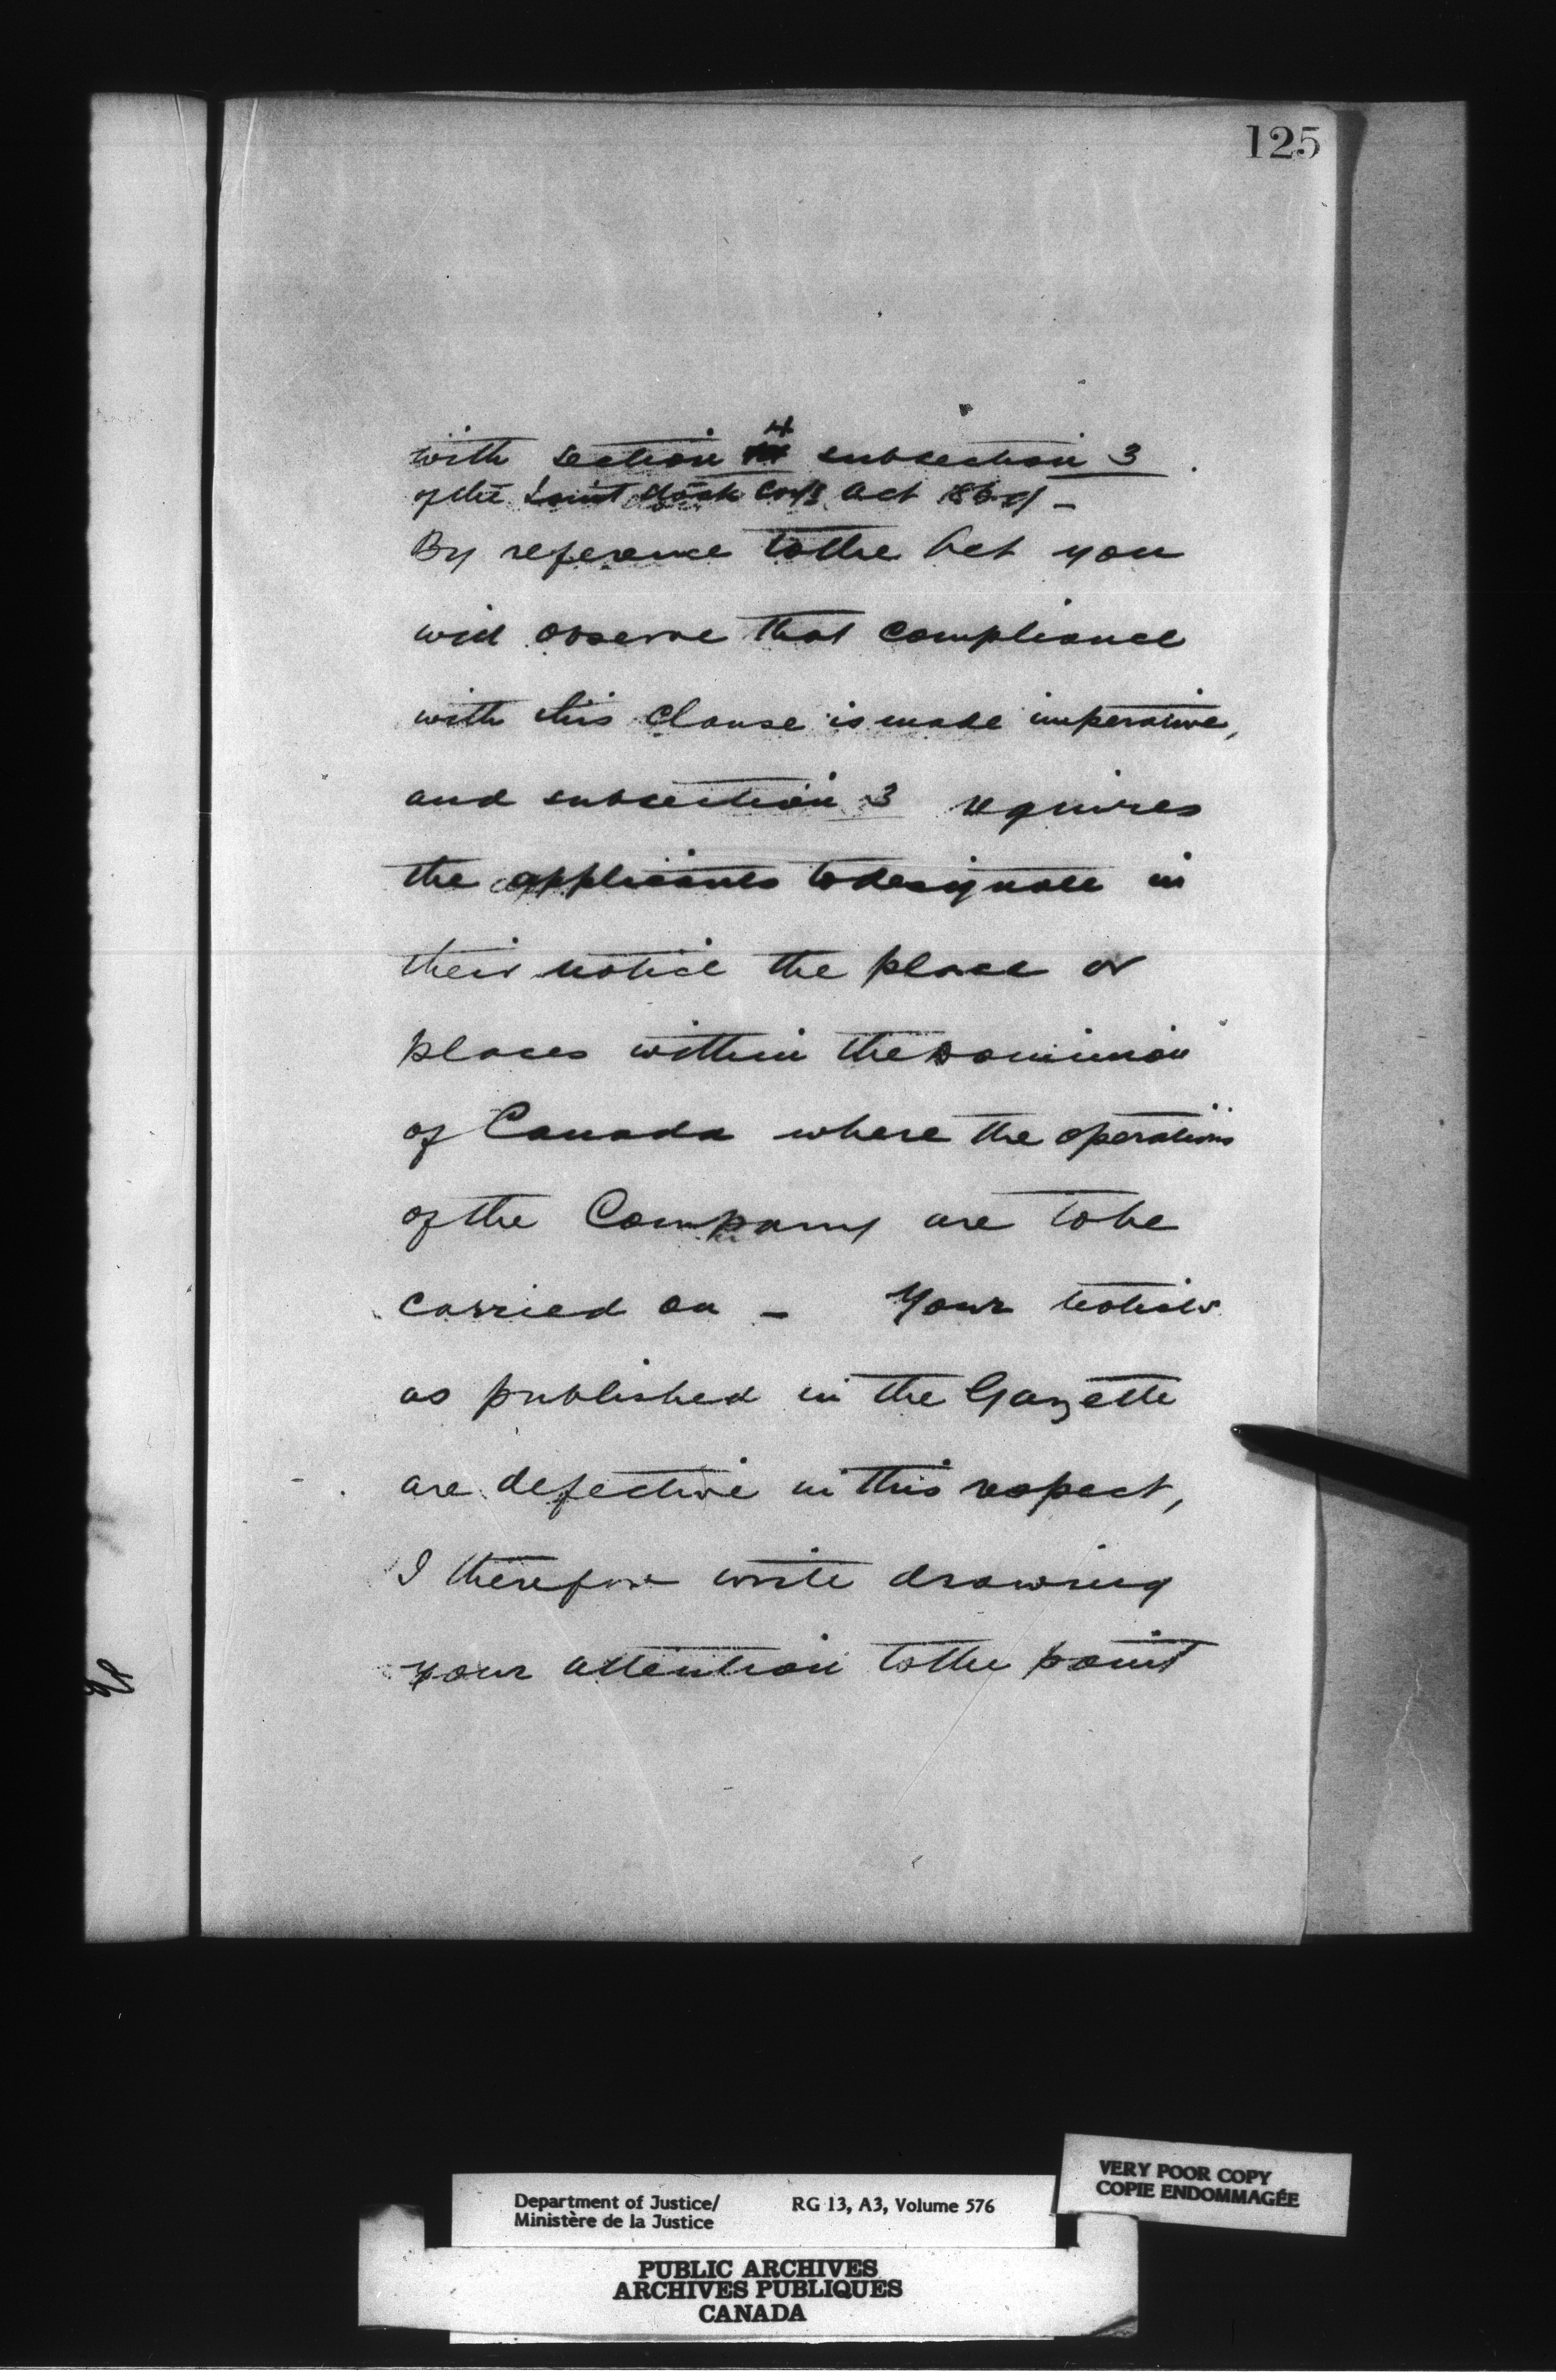 125
with section 4 subsection 3
of the Joint Stock Coy's Act 1869 —
By reference to the Act you
will observe that compliance
with this clause is made imperative,
and subsection 3 requires
the applicants to designate in
their notice the place or
places within the Dominion
of Canada where the operations
of the Company are to be
carried on — Your notices
as published in the Gazette
are defective in this respect,
I therefore write drawing
your attention to the point
Department of Justice/ RG 13, A3, Volume 576
Ministère de la Justice
VERY POOR COPY
COPIE ENDOMMAGÉE
PUBLIC ARCHIVES
ARCHIVES PUBLIQUES
CANADA